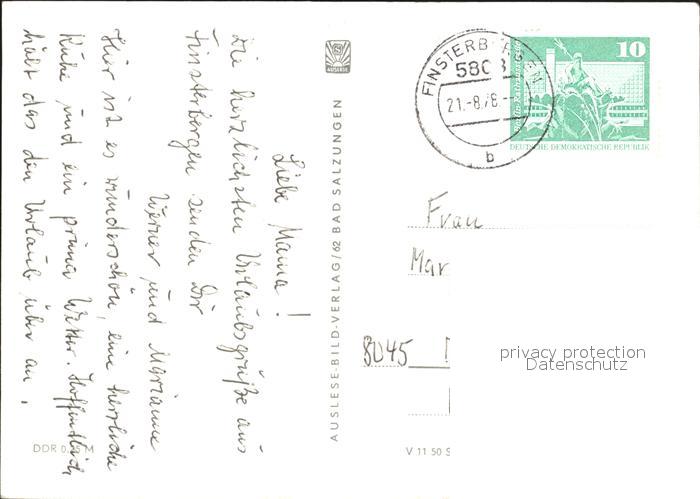 Liebe Mama!
Die herzlichsten Urlaubsgrüße aus
Finsterbergen senden Dir
Werner und Marianne
Hier ist es wunderschön, eine herrliche
Ruhe und ein prima Wetter. Hoffentlich
hält das den Urlaub über an.
DDR 0, M
AUSLESE
AUSLESE-BILD-VERLAG/62 BAD SALZUNGEN
FINSTERBERGEN
5808
21.-8.78.-
b
10
DEUTSCHE DEMOKRATISCHE REPUBLIK
Frau
Mar
8045
privacy protection
Datenschutz
V 11 50 S